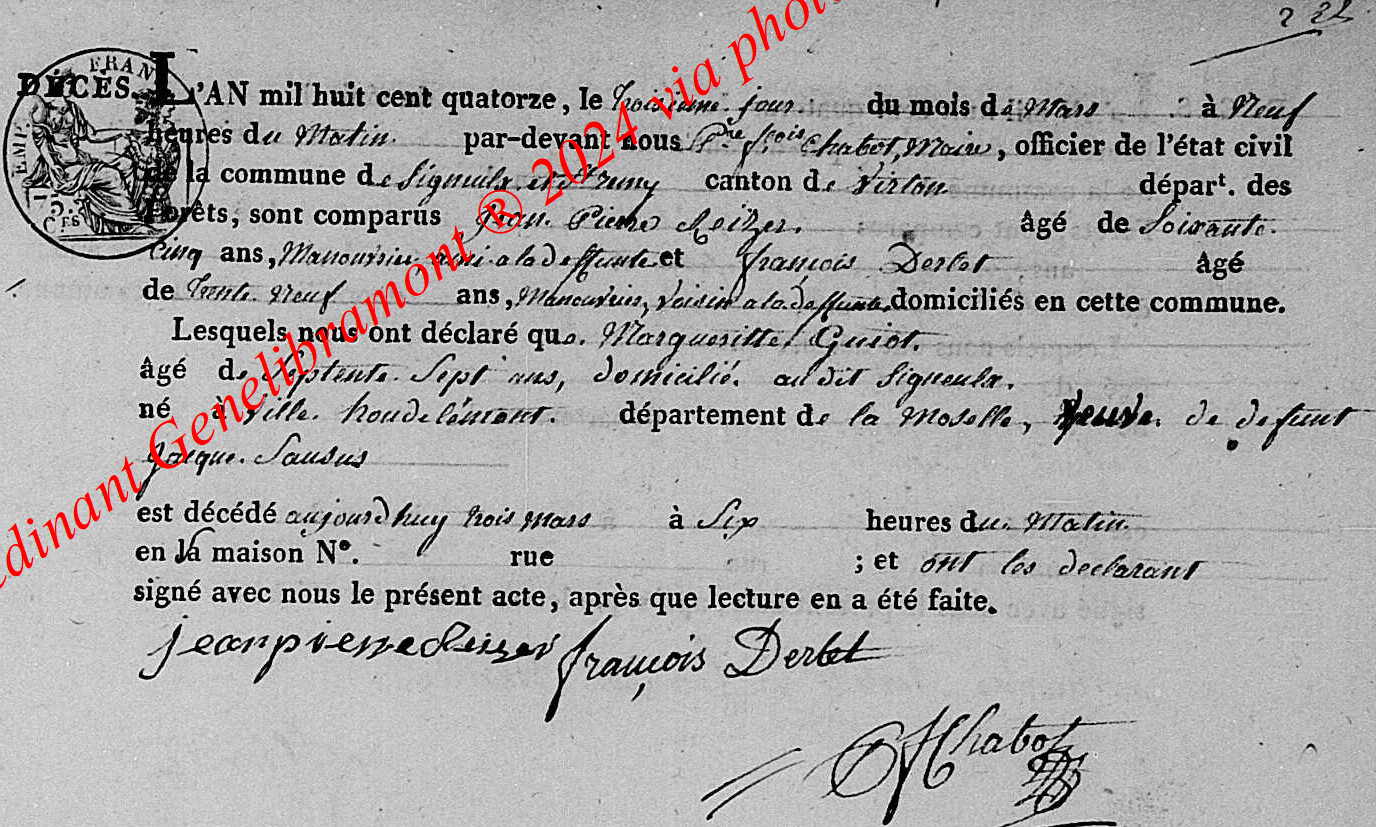 2 32
DÉCÈS. L'AN mil huit cent quatorze, le troisieme jour du mois de Mars à Neuf
heures du Matin par-devant nous Pre frois Chabot, Maire, officier de l'état civil
de la commune de Signeulx et St remy canton de Virton départ. des
Forêts, sont comparus Jean Pierre Reizer. âgé de Soixante
Cinq ans, Manouvrier ami a la deffunte et françois Derlet âgé
de trente Neuf ans, Manouvrier, Voisin a la deffunte, domiciliés en cette commune.
Lesquels nous ont déclaré que Margueritte Guiot.
âgé de Septente Sept ans, domicilié au dit Signeulx.
né à Ville houdlémont. département de la Moselle, veuve de defunt
Jacque Sausus
est décédé aujourdhuy trois mars à Six heures du Matin.
en la maison N°. rue ; et ont les declarant
signé avec nous le présent acte, après que lecture en a été faite.
jean pierre Reizer françois Derlet
Chabot
EMP. FRAN
75 CES
edinant Genelibramont ® 2024 via phot